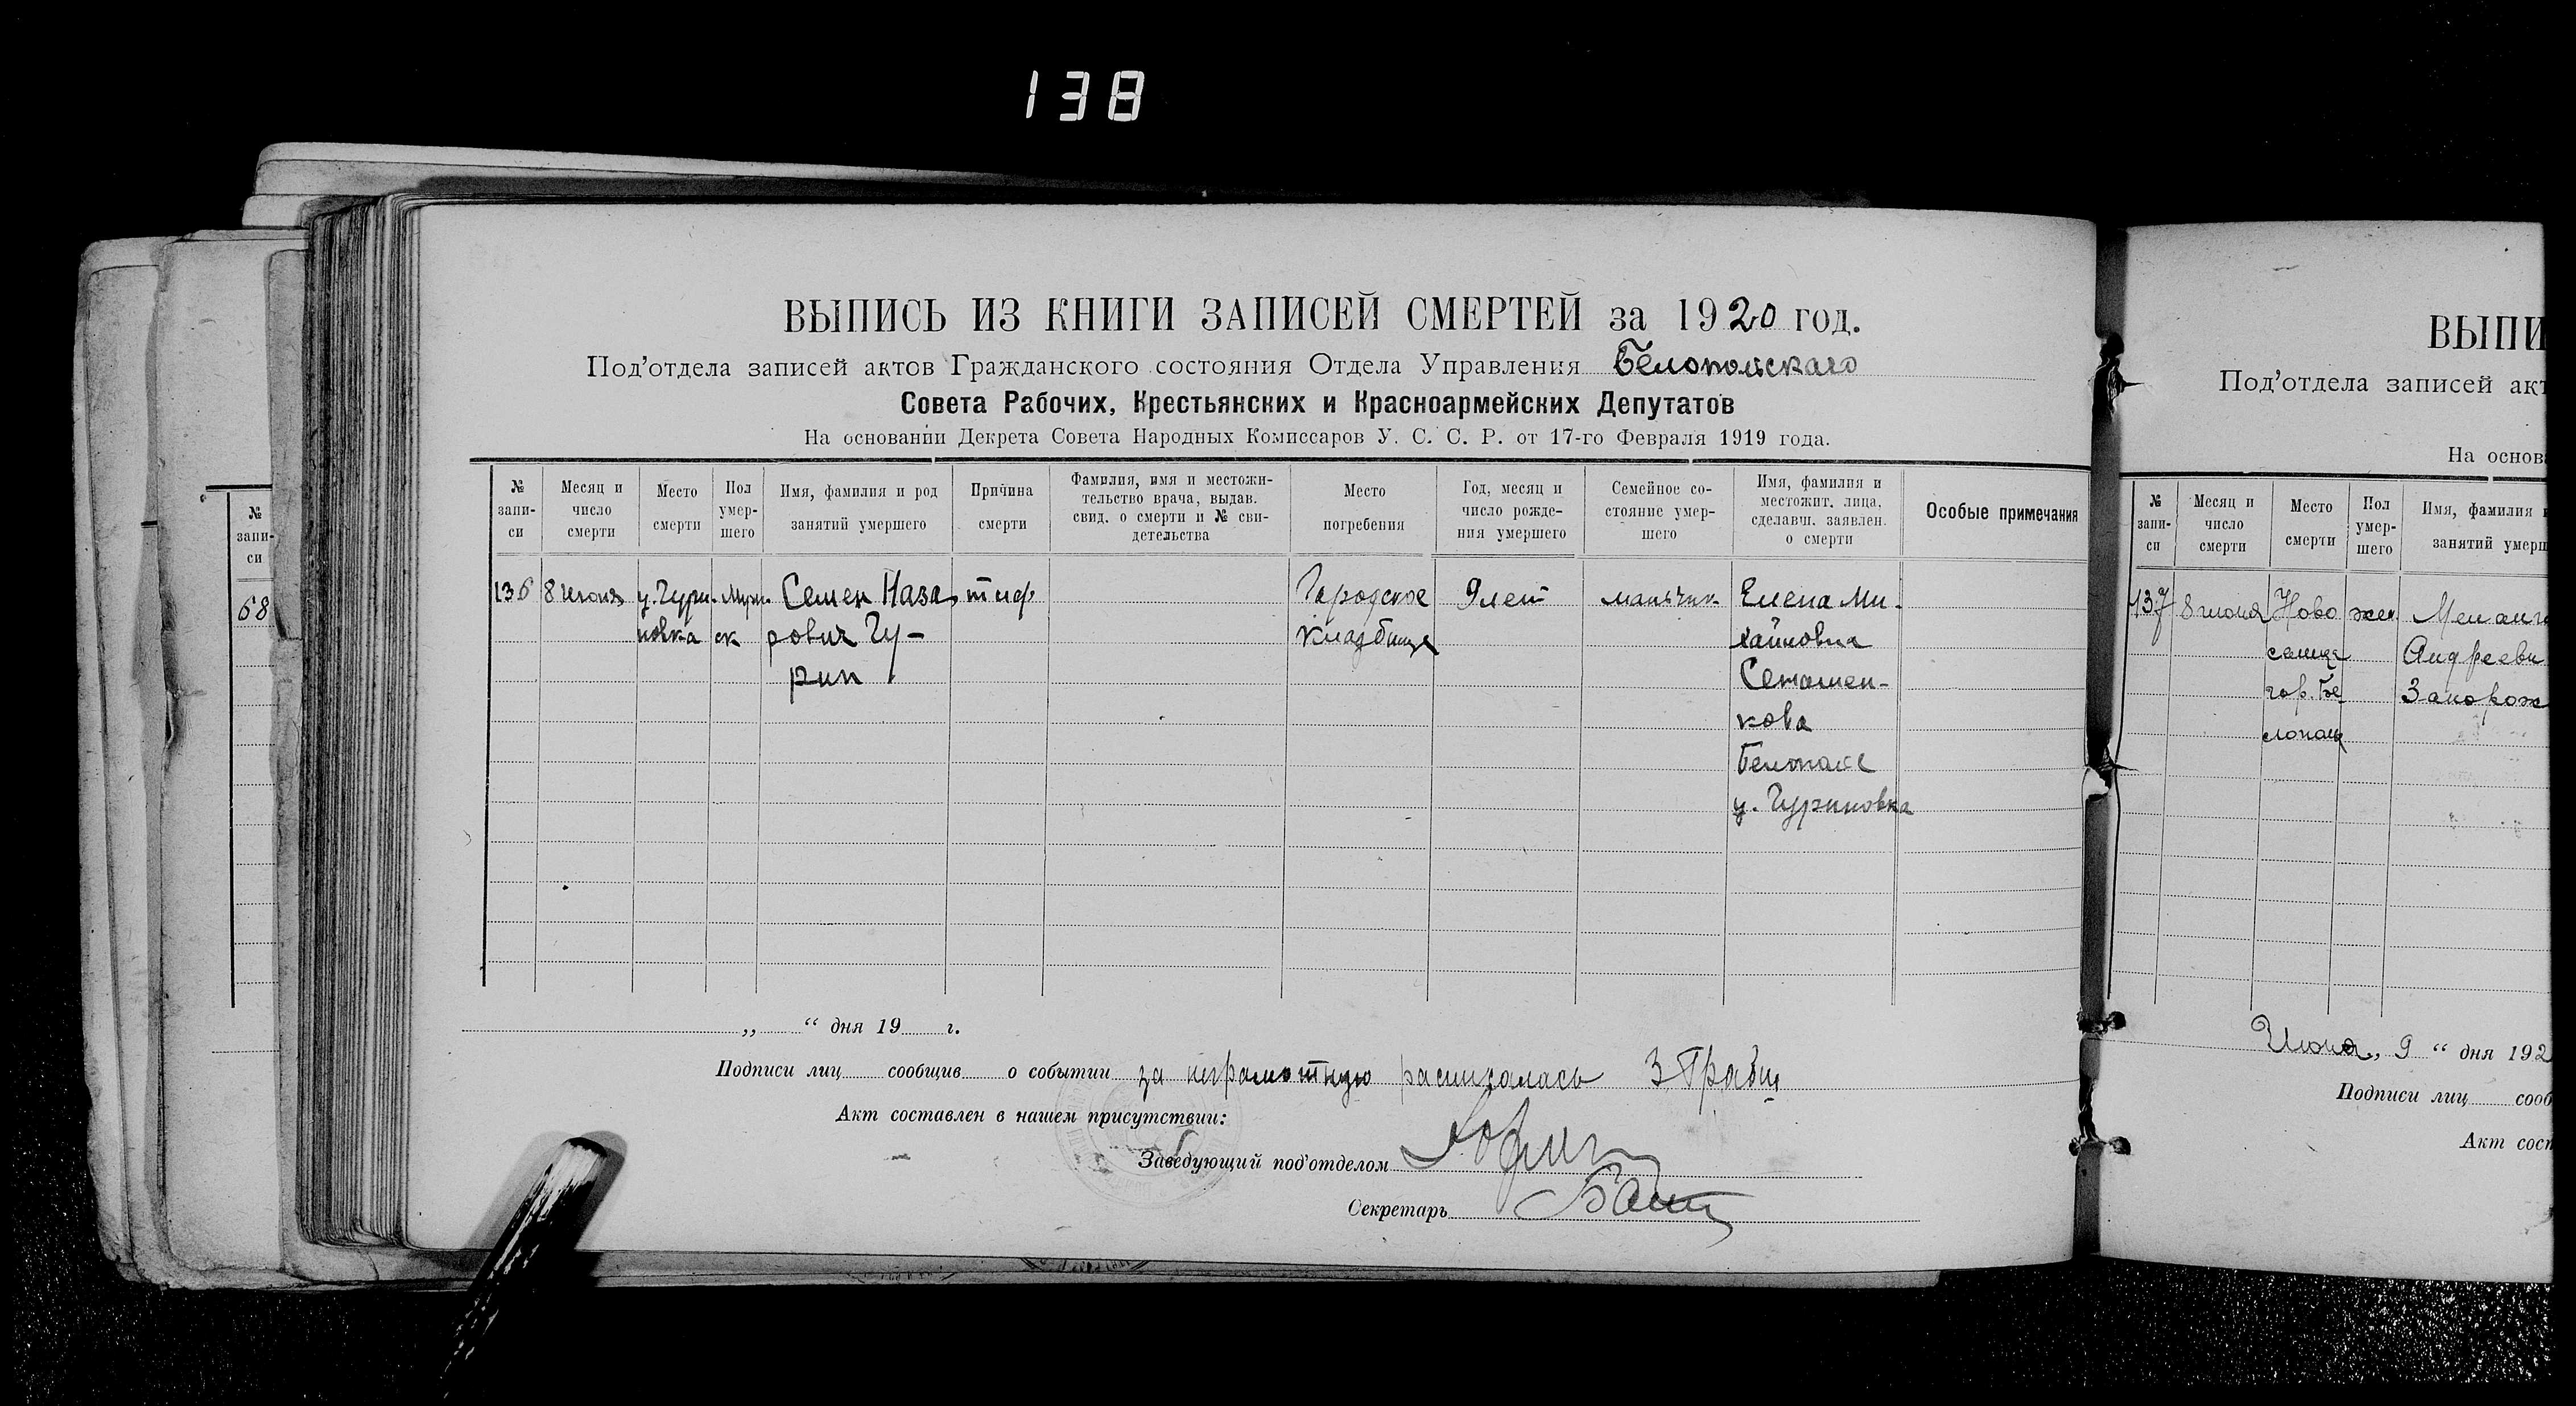 138
ВЫПИСЬ ИЗ КНИГИ ЗАПИСЕЙ СМЕРТЕЙ за 1920 год.
Под'отдела записей актов Гражданского состояния Отдела Управления Белопольскаго
Совета Рабочих, Крестьянских и Красноармейских Депутатов
На основании Декрета Совета Народных Комиссаров У. С. С. Р. от 17-го Февраля 1919 года.
№ записи
Месяц и число смерти
Место смерти
Пол умершего
Имя, фамилия и род занятий умершего
Причина смерти
Фамилия, имя и местожительство врача, выдав. свид. о смерти и № свидетельства
Место погребения
Год, месяц и число рождения умершего
Семейное состояние умершего
Имя, фамилия и местожит. лица, сделавш. заявлен. о смерти
Особые примечания
136 8 июня у. Гури- Муж. Семен Наза- тиф Городское 9 лет мальчик Елена Ми-
новка ск рович Гу- кладбище хайловна
рин
кова
Белополье
у. Гуриновка
„ “ дня 19 г.
Подписи лиц сообщив о событии за неграмотную расписалась З Грабц
Акт составлен в нашем присутствии:
Заведующий под'отделом
Секретарь
№ записи
68
ВЫПИ
Под'отдела записей акт
На основ
№ записи
Месяц и число смерти
Место смерти
Пол умершего
Имя, фамилия и
занятий умерш
137 8 июня Ново жен.
селица Андреевн
гор. Бе Запорож
лополь
Июня „ 9 “ дня 192
Подписи лиц сооб
Акт сост